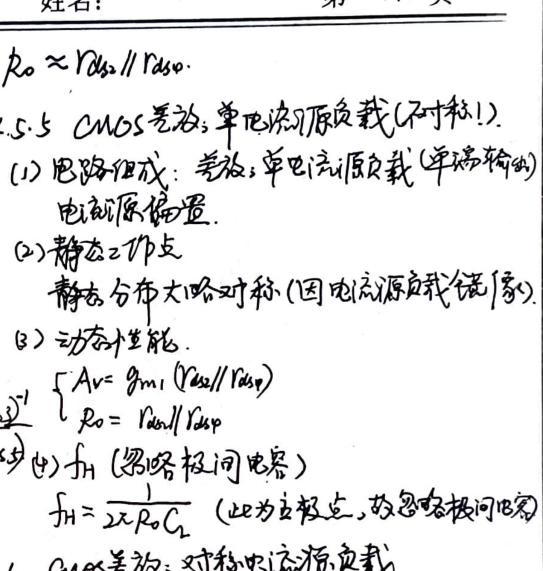 姓名: 第 页
Ro ≈ rds2 // rds4.
.5.5 CMOS差放: 单电流源负载(不对称!).
(1) 电路组成: 差放: 单电流源负载(单端输出)
电流源偏置.
(2) 静态工作点
静态分布大略对称(因电流源负载镜像).
(3) 动态性能.
Av = gm1 (rds2 // rds4)
)⁻¹ Ro = rds2 // rds4
(4) fH (忽略极间电容)
fH = 1/(2πRoCL) (此为主极点, 故忽略极间电容)
CMOS差放: 对称电流源负载